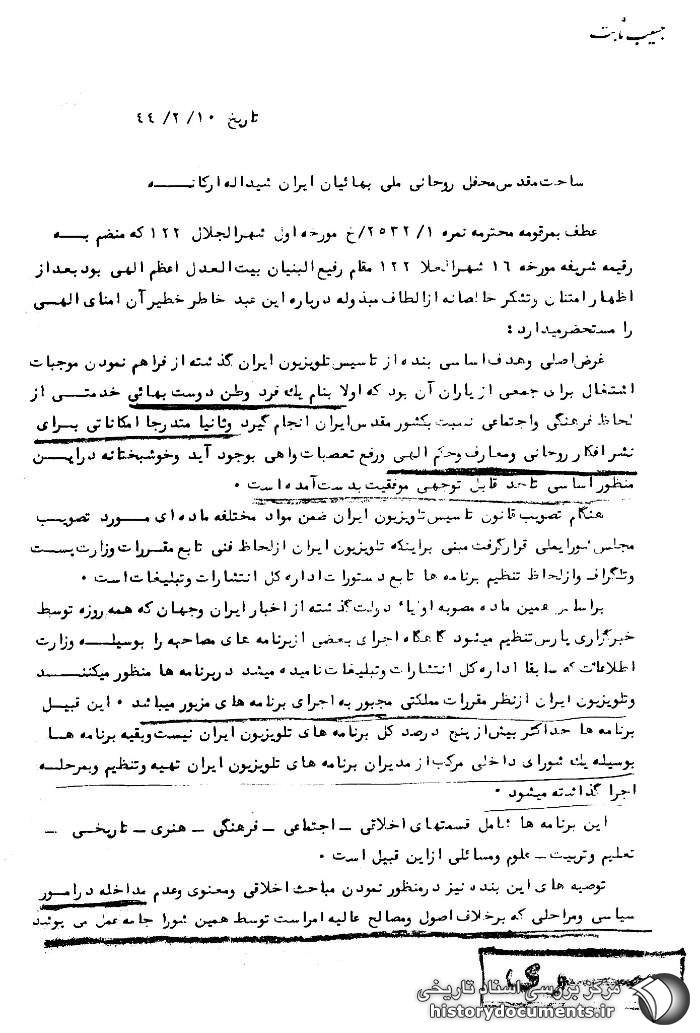 حبیب ثابت
تاریخ ۴۴/۲/۱۰
ساحت مقدس محفل روحانی ملی بهائیان ایران شیداله ارکانــــه
عطف بمرقومه محترمه نمره ۲۵۳۲/۱/خ مورخه اول شهرالجلال ۱۲۲ که منضم بــه
رقیمه شریفه مورخه ۱۶ شهرالعلا ۱۲۲ مقام رفیع البنیان بیت العدل اعظم الهی بود بعد از
اظهار امتنان وتشکر خالصانه از الطاف مبذوله درباره این عبد خاطر خطیر آن امنای الهــی
را مستحضر میدارد :
غرض اصلی وهدف اساسی بنده از تاسیس تلویزیون ایران گذشته از فراهم نمودن موجبات
اشتغال برای جمعی از یاران آن بود که اولا بنام یك فرد وطن دوست بهائی خدمتــی از
لحاظ فرهنگی واجتماعی نسبت بکشور مقدس ایران انجام گیرد وثانیا متدرجا امکاناتی بــرای
نشر افکار روحانی ومعارف وحکم الهی ورفع تعصبات واهی بوجود آید وخوشبختانه در ایــن
منظور اساسی تا حد قابل توجهی موفقیت بدست آمده است ۰
هنگام تصویب قانون تاسیس تلویزیون ایران ضمن مواد مختلفه ماده ای مــورد تصویــب
مجلس شورایملی قرار گرفت مبنی بر اینکه تلویزیون ایران از لحاظ فنی تابع مقــررات وزارت پســت
وتلگراف و از لحاظ تنظیم برنامه ها تابع دستورات اداره کل انتشارات وتبلیغات است ۰
بر اساس همین ماده مصوبه اولیاء دولت گذشته از اخبار ایران وجهان که همه روزه توسط
خبرگزاری پارس تنظیم میشود گاهگاه اجرای بعضی از برنامه های مصاحبه را بوسیلــه وزارت
اطلاعات که سابقا اداره کل انتشارات وتبلیغات نامیده میشد در برنامه ها منظور میکننــد
وتلویزیون ایران از نظر مقررات مملکتی مجبور به اجرای برنامه های مزبور میباشد ۰ این قبیــل
برنامه ها حداکثر بیش از پنج درصد کل برنامه های تلویزیون ایران نیست وبقیه برنامه هــا
بوسیله یك شورای داخلی مرکب از مدیران برنامه های تلویزیون ایران تهیه وتنظیم وبمرحلــه
اجرا گذاشته میشود ۰
این برنامه ها شامل قسمتهای اخلاقی ــ اجتماعی ــ فرهنگی ــ هنری ــ تاریخــی ــ
تعلیم وتربیت ــ علوم ومسائلی از این قبیل است ۰
توصیه های این بنده نیز در منظور نمودن مباحث اخلاقی ومعنوی وعدم مداخله در امــور
سیاسی ومراحلی که بر خلاف اصول ومصالح عالیه امر است توسط همین شورا جامه عمل می پوشد
مرکز بررسی اسناد تاریخی
historydocuments.ir